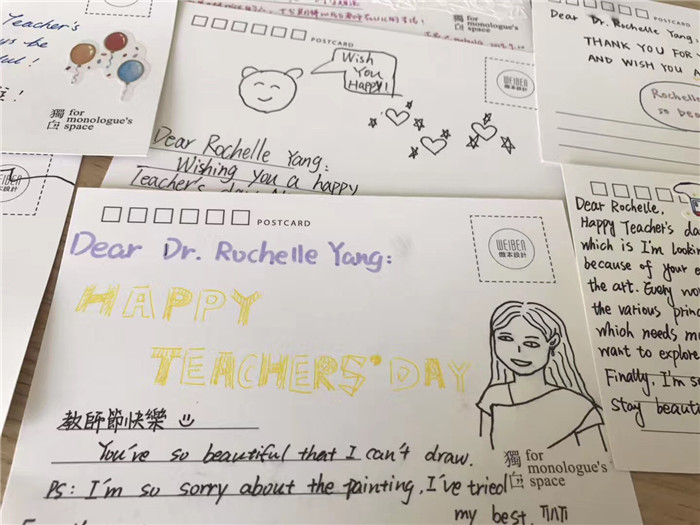 Teacher's
獨白
for
monologue's
space
POSTCARD
Wish
You
Happy!
WEIBEN
微本設計
Dear Rochelle Yang:
Wishing you a happy
Teacher's day
獨白
for
monologue's
space
Dear Dr. Rochelle Yang,
THANK YOU FOR
AND WISH YOU
Rochelle
so
POSTCARD
WEIBEN
微本設計
Dear Dr. Rochelle Yang:
HAPPY
TEACHERS' DAY
教師節快樂
You've so beautiful that I can't draw.
PS: I'm so sorry about the painting, I've tried
my best.
獨白
for
monologue's
space
Dear Rochelle,
Happy Teacher's
which is I'm
because of your
the art. Every
the various
which needs
want to explore
Finally, I'm
Stay